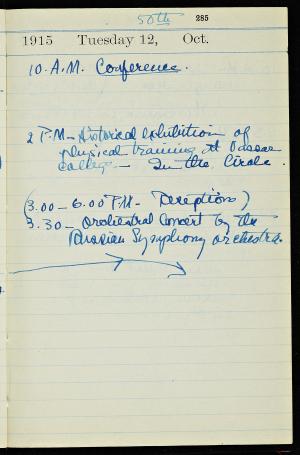 50th 285
1915 Tuesday 12, Oct.
10. A.M. Conference.
2 P.M. – Historical exhibition of
physical training at Vassar
College – In the Circle.
(3.00 – 6.00 P.M. – Receptions)
3.30 – Orchestral Concert by the
Russian Symphony orchestra.